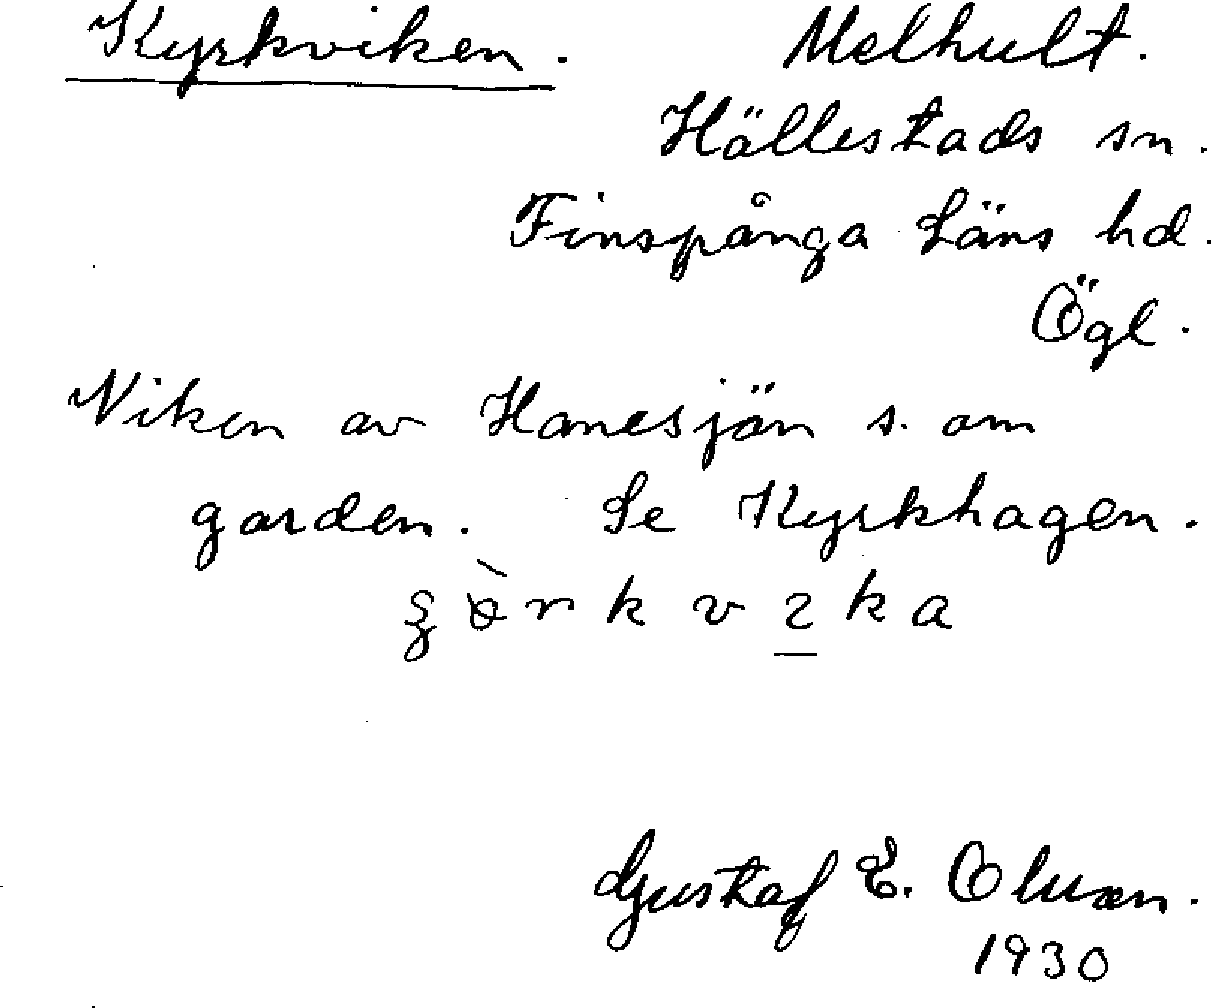 Kyrkviken. Melhult.
Hällestads sn.
Finspånga Läns hd.
Ögl.
Viken av Hanesjön s. om
garden. Se Kyrkhagen.
Gustaf E.
1930